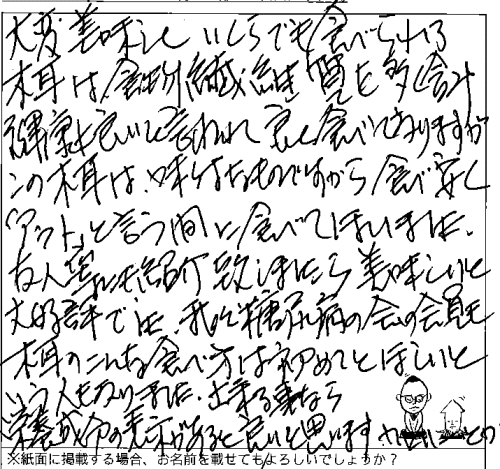 大変美味しくいくらでも食べられる
木耳は食物繊維 質を多く含み
健康に良いと言われ 良く食べておりますが
この木耳は、味付なものですから食べ安く
「アット」と言う間に食べてしまいました。
友人等にも紹介致しましたら美味しいと
大好評でした、我々糖尿病の会の会員も
木耳のこんな食べ方は初めてとほしいと
いう人もおりました。出来る事なら
栄養成分の表示があると良いと思います
※紙面に掲載する場合、お名前を載せてもよろしいでしょうか？